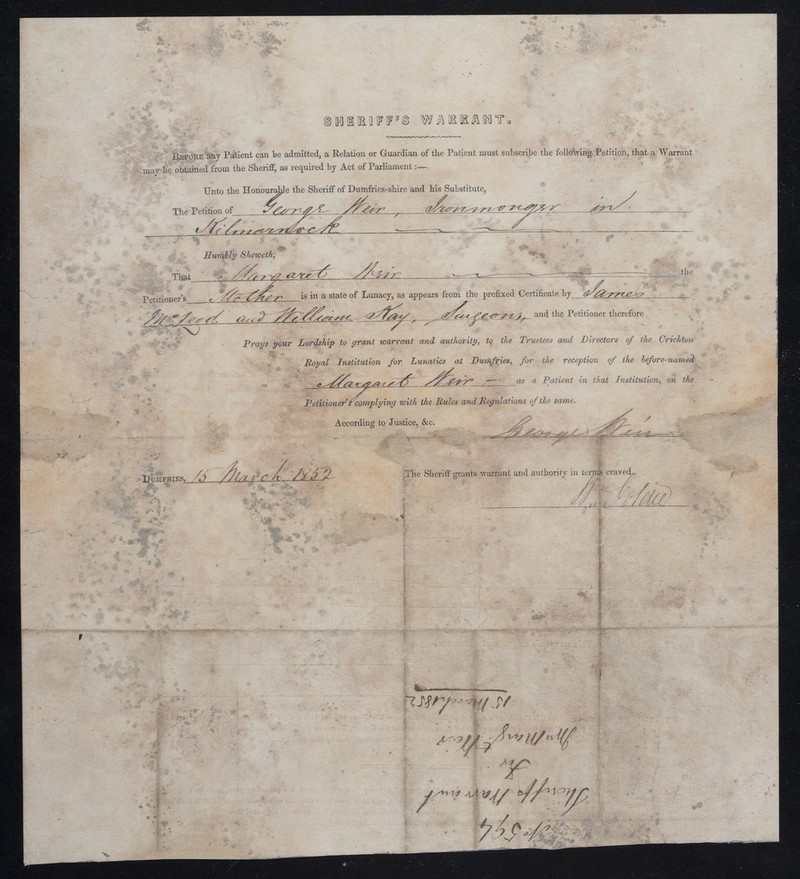 SHERIFF'S WARRANT.
BEFORE any Patient can be admitted, a Relation or Guardian of the Patient must subscribe the following Petition, that a Warrant
may be obtained from the Sheriff, as required by Act of Parliament :—
Unto the Honourable the Sheriff of Dumfries-shire and his Substitute,
The Petition of George Weir, Ironmonger in
Kilmarnock
Humbly Sheweth,
That Margaret Weir the
Petitioner's Mother is in a state of Lunacy, as appears from the prefixed Certificate by James
McLeod and William Kay, Surgeons, and the Petitioner therefore
Prays your Lordship to grant warrant and authority, to the Trustees and Directors of the Crichton
Royal Institution for Lunatics at Dumfries, for the reception of the before-named
Margaret Weir — as a Patient in that Institution, on the
Petitioner's complying with the Rules and Regulations of the same.
According to Justice, &c.
George Weir
DUMFRIES, 15 March 1852
The Sheriff grants warrant and authority in terms craved.
Wm
No 594
Sheriffs Warrant
for
Mrs Margt Weir
15 March 1852